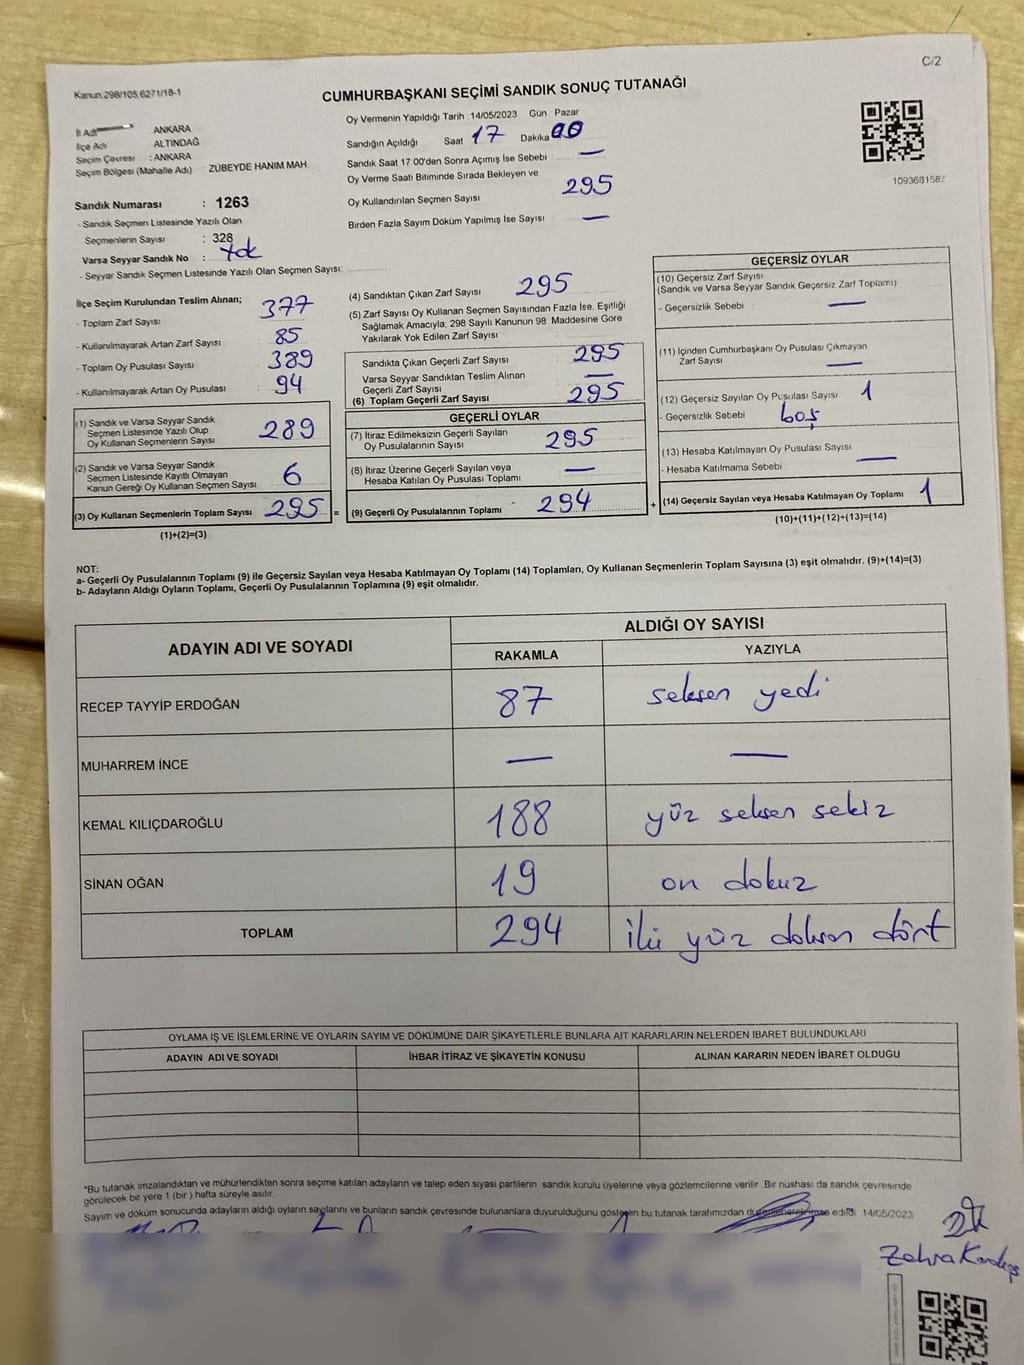 C/2
Kanun 298/105,6271/18-1
CUMHURBAŞKANI SEÇİMİ SANDIK SONUÇ TUTANAĞI
İl Adı ANKARA
İlçe Adı ALTINDAĞ
Seçim Çevresi : ANKARA
Seçim Bölgesi (Mahalle Adı) : ZÜBEYDE HANIM MAH.
Sandık Numarası : 1263
- Sandık Seçmen Listesinde Yazılı Olan
Seçmenlerin Sayısı : 328
Varsa Seyyar Sandık No : Yok
- Seyyar Sandık Seçmen Listesinde Yazılı Olan Seçmen Sayısı:
Oy Vermenin Yapıldığı Tarih : 14/05/2023 Gün Pazar
Sandığın Açıldığı Saat 17 Dakika 00
Sandık Saat 17.00'den Sonra Açımış İse Sebebi : —
Oy Verme Saati Bitiminde Sırada Bekleyen ve
Oy Kullandırılan Seçmen Sayısı : 295
Birden Fazla Sayım Döküm Yapılmış İse Sayısı : —
1093681587
İlçe Seçim Kurulundan Teslim Alınan;
- Toplam Zarf Sayısı : 377
- Kullanılmayarak Artan Zarf Sayısı : 85
- Toplam Oy Pusulası Sayısı : 389
- Kullanılmayarak Artan Oy Pusulası : 94
(1) Sandık ve Varsa Seyyar Sandık
Seçmen Listesinde Yazılı Olup
Oy Kullanan Seçmenlerin Sayısı : 289
(2) Sandık ve Varsa Seyyar Sandık
Seçmen Listesinde Kayıtlı Olmayan
Kanun Gereği Oy Kullanan Seçmen Sayısı : 6
(3) Oy Kullanan Seçmenlerin Toplam Sayısı : 295 =
(1)+(2)=(3)
(4) Sandıktan Çıkan Zarf Sayısı : 295
(5) Zarf Sayısı Oy Kullanan Seçmen Sayısından Fazla İse, Eşitliği
Sağlamak Amacıyla, 298 Sayılı Kanunun 98. Maddesine Göre
Yakılarak Yok Edilen Zarf Sayısı :
Sandıkta Çıkan Geçerli Zarf Sayısı : 295
Varsa Seyyar Sandıktan Teslim Alınan
Geçerli Zarf Sayısı : —
(6) Toplam Geçerli Zarf Sayısı : 295
GEÇERLİ OYLAR
(7) İtiraz Edilmeksizin Geçerli Sayılan
Oy Pusulalarının Sayısı : 295
(8) İtiraz Üzerine Geçerli Sayılan veya
Hesaba Katılan Oy Pusulası Toplamı : —
(9) Geçerli Oy Pusulalarının Toplamı : 294 +
GEÇERSİZ OYLAR
(10) Geçersiz Zarf Sayısı
(Sandık ve Varsa Seyyar Sandık Geçersiz Zarf Toplamı)
- Geçersizlik Sebebi : —
(11) İçinden Cumhurbaşkanı Oy Pusulası Çıkmayan
Zarf Sayısı : —
(12) Geçersiz Sayılan Oy Pusulası Sayısı : 1
- Geçersizlik Sebebi : boş
(13) Hesaba Katılmayan Oy Pusulası Sayısı : —
- Hesaba Katılmama Sebebi :
(14) Geçersiz Sayılan veya Hesaba Katılmayan Oy Toplamı 1
(10)+(11)+(12)+(13)=(14)
NOT:
a- Geçerli Oy Pusulalarının Toplamı (9) ile Geçersiz Sayılan veya Hesaba Katılmayan Oy Toplamı (14) Toplamları, Oy Kullanan Seçmenlerin Toplam Sayısına (3) eşit olmalıdır. (9)+(14)=(3)
b- Adayların Aldığı Oyların Toplamı, Geçerli Oy Pusulalarının Toplamına (9) eşit olmalıdır.
ADAYIN ADI VE SOYADI ALDIĞI OY SAYISI
RAKAMLA YAZIYLA
RECEP TAYYİP ERDOĞAN 87 seksen yedi
MUHARREM İNCE — —
KEMAL KILIÇDAROĞLU 188 yüz seksen sekiz
SİNAN OĞAN 19 on dokuz
TOPLAM 294 iki yüz doksan dört
OYLAMA İŞ VE İŞLEMLERİNE VE OYLARIN SAYIM VE DÖKÜMÜNE DAİR ŞİKAYETLERLE BUNLARA AİT KARARLARIN NELERDEN İBARET BULUNDUKLARI
ADAYIN ADI VE SOYADI İHBAR İTİRAZ VE ŞİKAYETİN KONUSU ALINAN KARARIN NEDEN İBARET OLDUĞU
*Bu tutanak imzalandıktan ve mühürlendikten sonra seçime katılan adayların ve talep eden siyasi partilerin sandık kurulu üyelerine veya gözlemcilerine verilir. Bir nüshası da sandık çevresinde
görülecek bir yere 1 (bir) hafta süreyle asılır.
Sayım ve döküm sonucunda adayların aldığı oyların sayılarını ve bunların sandık çevresinde bulunanlara duyurulduğunu gösteren bu tutanak tarafımızdan edildi. 14/05/2023
Zehra